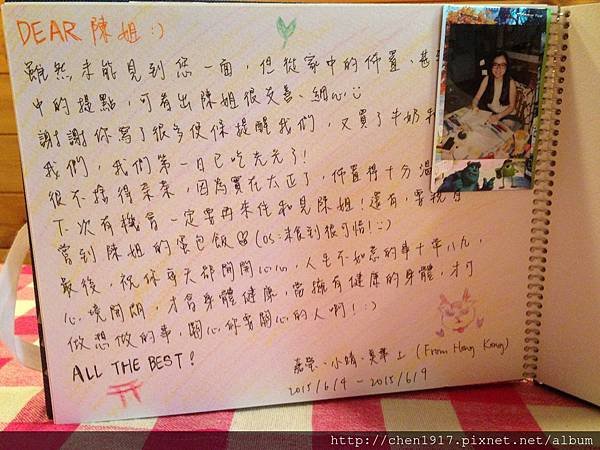 DEAR 陳姐 :)
雖然未能見到您一面，但從家中的佈置、甚至
中的提點，可看出陳姐很友善、細心
謝謝你寫了很多便條提醒我們，又買了牛奶
我們，我們第一日已吃光光了!
很不捨得菜菜，因為實在太正了，佈置得十分溫
下次有機會一定要再來住和見陳姐!還有，要親自
嘗到陳姐的蛋包飯 (os:未食到很可惜!:)
最後，祝你每天都開開心心，人生不如意的事十常八九，
心境開朗，才會身體健康，當擁有健康的身體，才可
做想做的事，關心你要關心的人啊!:)
ALL THE BEST!
(From Hong Kong)
2015/6/4 - 2015/6/9
http://chen1917.pixnet.net/album